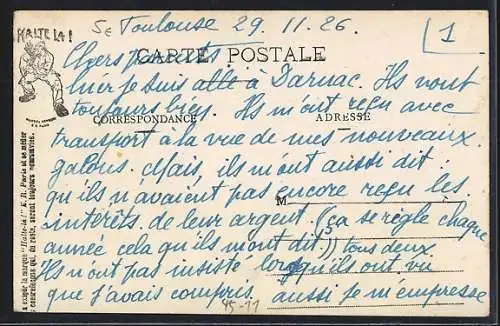 HALTE LÀ !
5e Toulouse 29. 11. 26.
1
CARTE POSTALE
Chers parents
hier je suis allé à Darnac. Ils vont
toujours bien. Ils m'ont reçu avec
CORRESPONDANCE
ADRESSE
transport à la vue de mes nouveaux
galons. Mais, ils m'ont aussi dit
qu'ils n'avaient pas encore reçu les
M
intérêts de leur argent. (ça se règle chaque
année cela qu'ils m'ont dit)) tous deux.
Ils n'ont pas insisté lorsqu'ils ont vu
que j'avais compris. aussi je m'empresse
45-11
a marque "Halte-là!" E. R. Paris et se méfier
, du reste, seront toujours poursuivies.